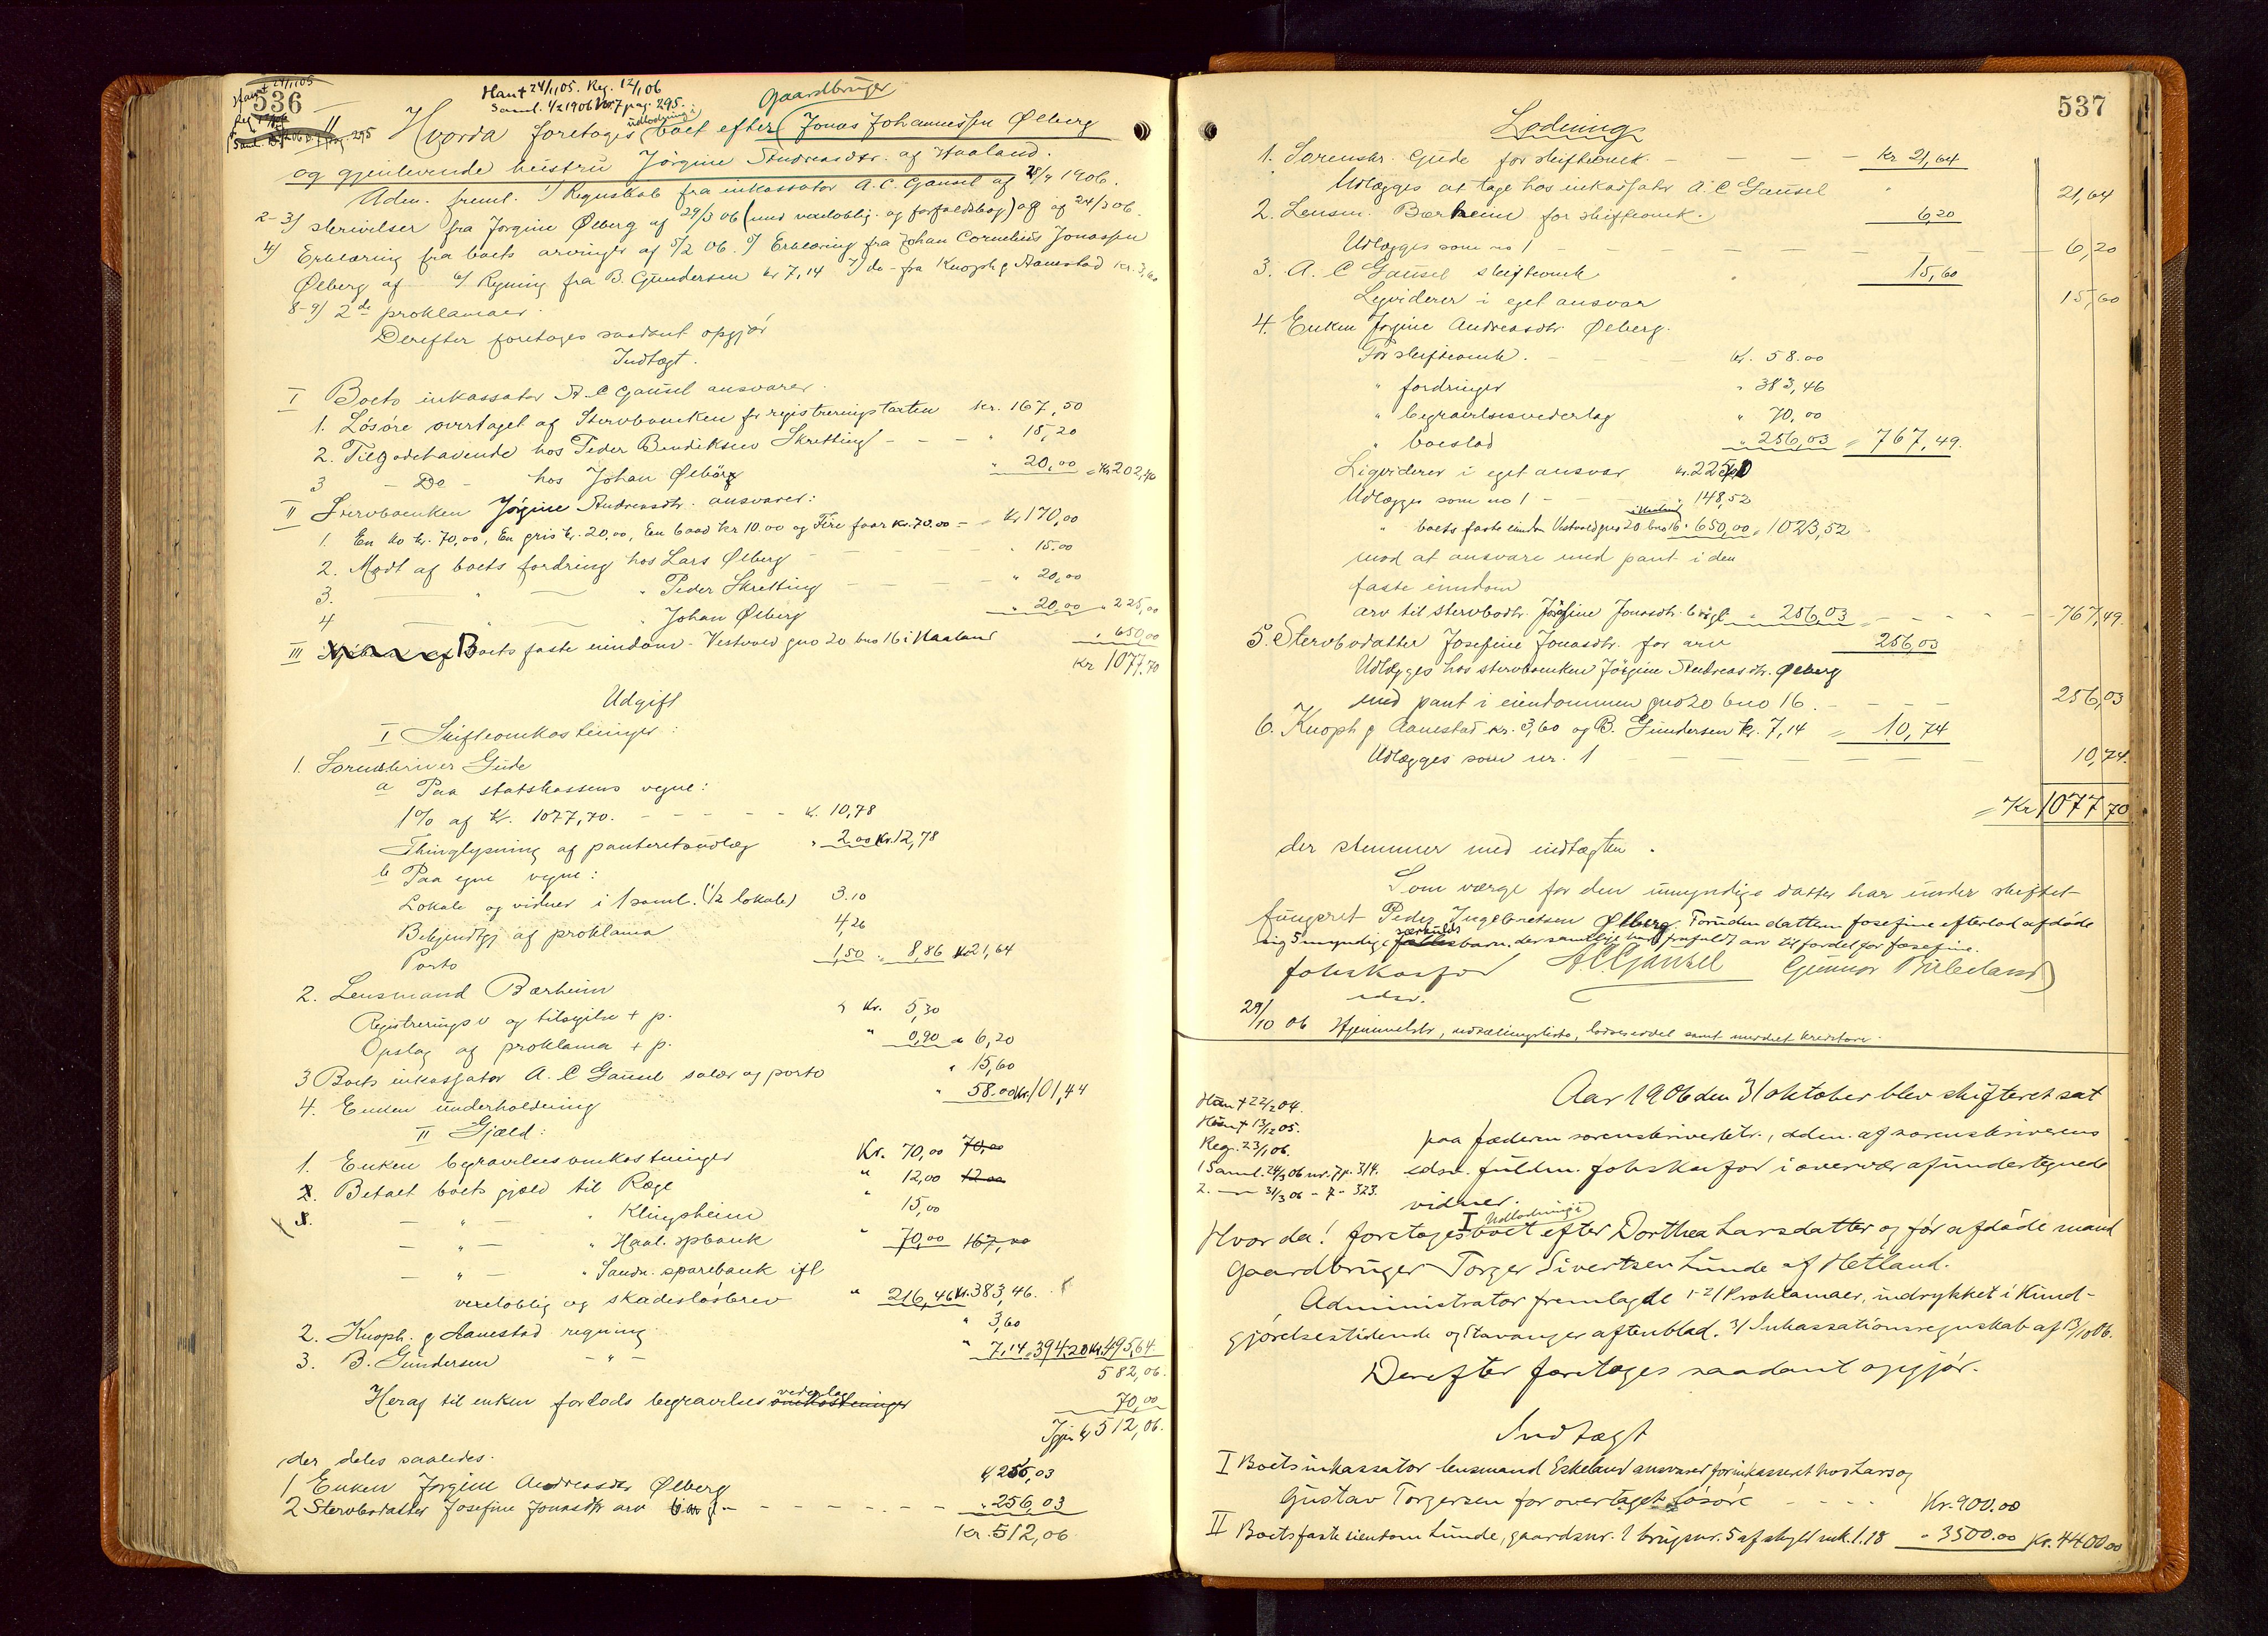 536
Han + 24/11 05. Reg. 12/1 06
Saml. 1/2 1906 No 7 pag. 295.
II
Hvorda foretoges udlodning i boet efter Gaardbruger Jonas Johannessen Ølberg
og gjenlevende hustru Jörgine Andreasdtr. af Haaland.
Adm. freml. 1/ Regnskab fra inkassator A. C. Gausel af 25/9 1906.
2-3/ skrivelser fra Jörgine Ølberg af 29/3 06 (med vexeloblig. og forfaldsbog) og af 24/3 06.
4/ Erklæring fra boets arvinger af 5/2 06. 5/ Erklæring fra Johan Cornelius Jonassen
Ølberg af 6/ Regning fra B. Gundersen kr 7,14 7/ do - fra Knoph & Aanestad kr. 3,60
8-9/ 2de proklamaer.
Derefter foretoges saadant opgjør
Indtægt.
I Boets inkassator A. C Gausel ansvarer.
1. Lösöre overtaget af Stervboenken for registreringstaxten kr. 167,50
2. Tilgodehavende hos Peder Bendiksen Skretting - - - " 15,20
3 - Do - hos Johan Ølbörg " 20,00 = Kr 202,70
II Stervboenken Jörgine Andreasdtr. ansvarer:
1. En ko kr. 70,00, En gris kr. 20,00, En baad kr 10.00 og Fire faar kr. 70.00 - = Kr 170,00
2. Modt af boets fordring hos Lars Ølberg - - - " 15.00
3. " Peder Skretting - - - " 20,00
4 " Johan Ølberg " 20,00 " 225,00
III Boets faste eiendom - Vestvold gno 20 bno 16 i Haaland " 650,00
Kr 1077.70
Udgift
I Skifteomkostninger:
1. Sorenskriver Gude
a Paa statskassens vegne:
1% af kr. 1077,70. - - - - - kr. 10,78
Thinglysning af panteretsudlæg " 2.00 Kr. 12,78
b Paa egne vegne:
Lokale og vidner i 1 saml. (1/2 lokale) 3.10
Bekjendtgj af proklama 4,26
Porto 1,50 = 8,86 Kr 21,64
2. Lensmand Bærheim
Registrerings v og tilsigelse + p. Kr. 5,30
Opslag af proklama + p. " 0,90 " 6,20
3 Boets inkassator A. C Gausel salær og porto " 15,60
4. Enken underholdning " 58.00 Kr. 101,44
II Gjæld:
1. Enken begravelsesomkostninger Kr. 70,00 70,00
2. Betalt boets gjæld til Ræge " 12,00 12 00
- " - " Klingsheim " 15,00
- " - " Haal. spbank " 70,00 167,00
- " - " Sandn. sparebank ifl
vexeloblig og skadeslösbrev " 216,46 Kr. 383,46.
2. Knoph. & Aanestad regning " 3,60
3. B. Gundersen - " - " 7,14 = 394.20 Kr. 495,64.
582,06.
Heraf til enken forlods begravelses omkostninger vederlag 70,00
Igjen kr 512,06.
der deles saaledes.
1 Enken Jörgine Andreasdtr Ølberg kr 256,03
2 Stervbodatter Josefine Jonasdtr arv - - - - - - - " 256,03
Kr. 512,06
537
Lodning
1. Sorenskr. Gude for skifteomk. - - - - kr 21,64
Udlægges at tage hos inkassator A. C Gausel 21,64
2. Lensm. Bærheim for skifteomk. 6,20
Udlægges som no 1 - - - - 6,20
3. A. C Gausel skifteomk 15,60
Ligviderer i eget ansvar 15,60
4. Enken Jörgine Andreasdtr. Ølberg.
For skifteomk. - - - - kr. 58.00
" fordringer " 383,46
" begravelsesvederlag " 70,00
" boeslod " 256,03 = 767,49.
Ligviderer i eget ansvar kr. 225,00
Udlægges som no 1 - " 148,52
" boets faste eiendom Vestvold gno 20 bno 16 i Haaland " 650,00 = 1023,52
mod at ansvare med pant i den
faste eiendom
arv til stervbodtr. Josefine Jonasdtr. " 256,03 - - - 767,49.
5. Stervbodatter Josefine Jonasdtr. for arv 256,03
Udlægges hos stervboenken Jörgine Andreasdtr. Ølberg
med pant i eiendommen gno 20 bno 16. - - - 256,03
6. Knoph & Aanestad kr. 3,60 og B. Gundersen kr. 7,14 = 10,74
Udlægges som nr. 1 - - - - - - 10,74.
= Kr 1077 70
der stemmer med indtægten.
Som værge for den umyndige datter har under skiftet
fungeret Peder Ingebretsen Ølberg. Foruden datteren Josefine efterlod afdöde
sig 5 myndige særkulds barn, der samtlige har frafaldt arv til fordel for Josefine.
Joh. Kasfor A. C. Gausel Gunnar Birkeland
edsv.
29/10 06 Hjemmelsbr, udsætlingsliste, lodseddel samt meddelt kreditor.
Aar 1906 den 31 oktober blev skifteret sat
paa Jæderen sorenskriverktr., adm. af sorenskriverens
edsv. fuldm. Joh. Kasfor i overvær af undertegnede
vidner.
Han + 22/2 04.
Hun + 13/12 05.
Reg. 23/1 06.
1 Saml. 24/3 06 nr. 7 p. 314.
2. - 31/3 06 - 7 - 323.
Hvor da! foretoges I Udlodning i boet efter Dorthea Larsdatter og för afdöde mand
gaardbruger Torger Sivertsen Lunde af Hetland.
Administrator fremlagde 1-2/ Proklamaer, indrykket i Kund-
gjörelsestidende og Stavanger aftenblad. 3/ Inkassationsregnskab af 13/10 06.
Derefter foretoges saadant opgjör.
Indtægt
I Boets inkassator lensmand Eskeland ansvarer for inkasseret hos Lars og
Gustav Torgersen for overtaget lösöre - - - - Kr. 900.00
II Boets faste eiendom Lunde, gaardsnr. 1 brugsnr. 5 af skyld mk. 1.18 " 3500.00 Kr. 4400 00